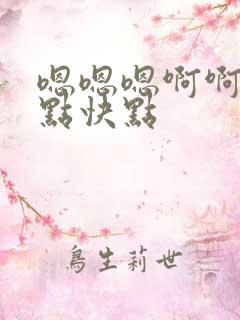 嗯嗯嗯啊啊
點快點
鳥生莉世